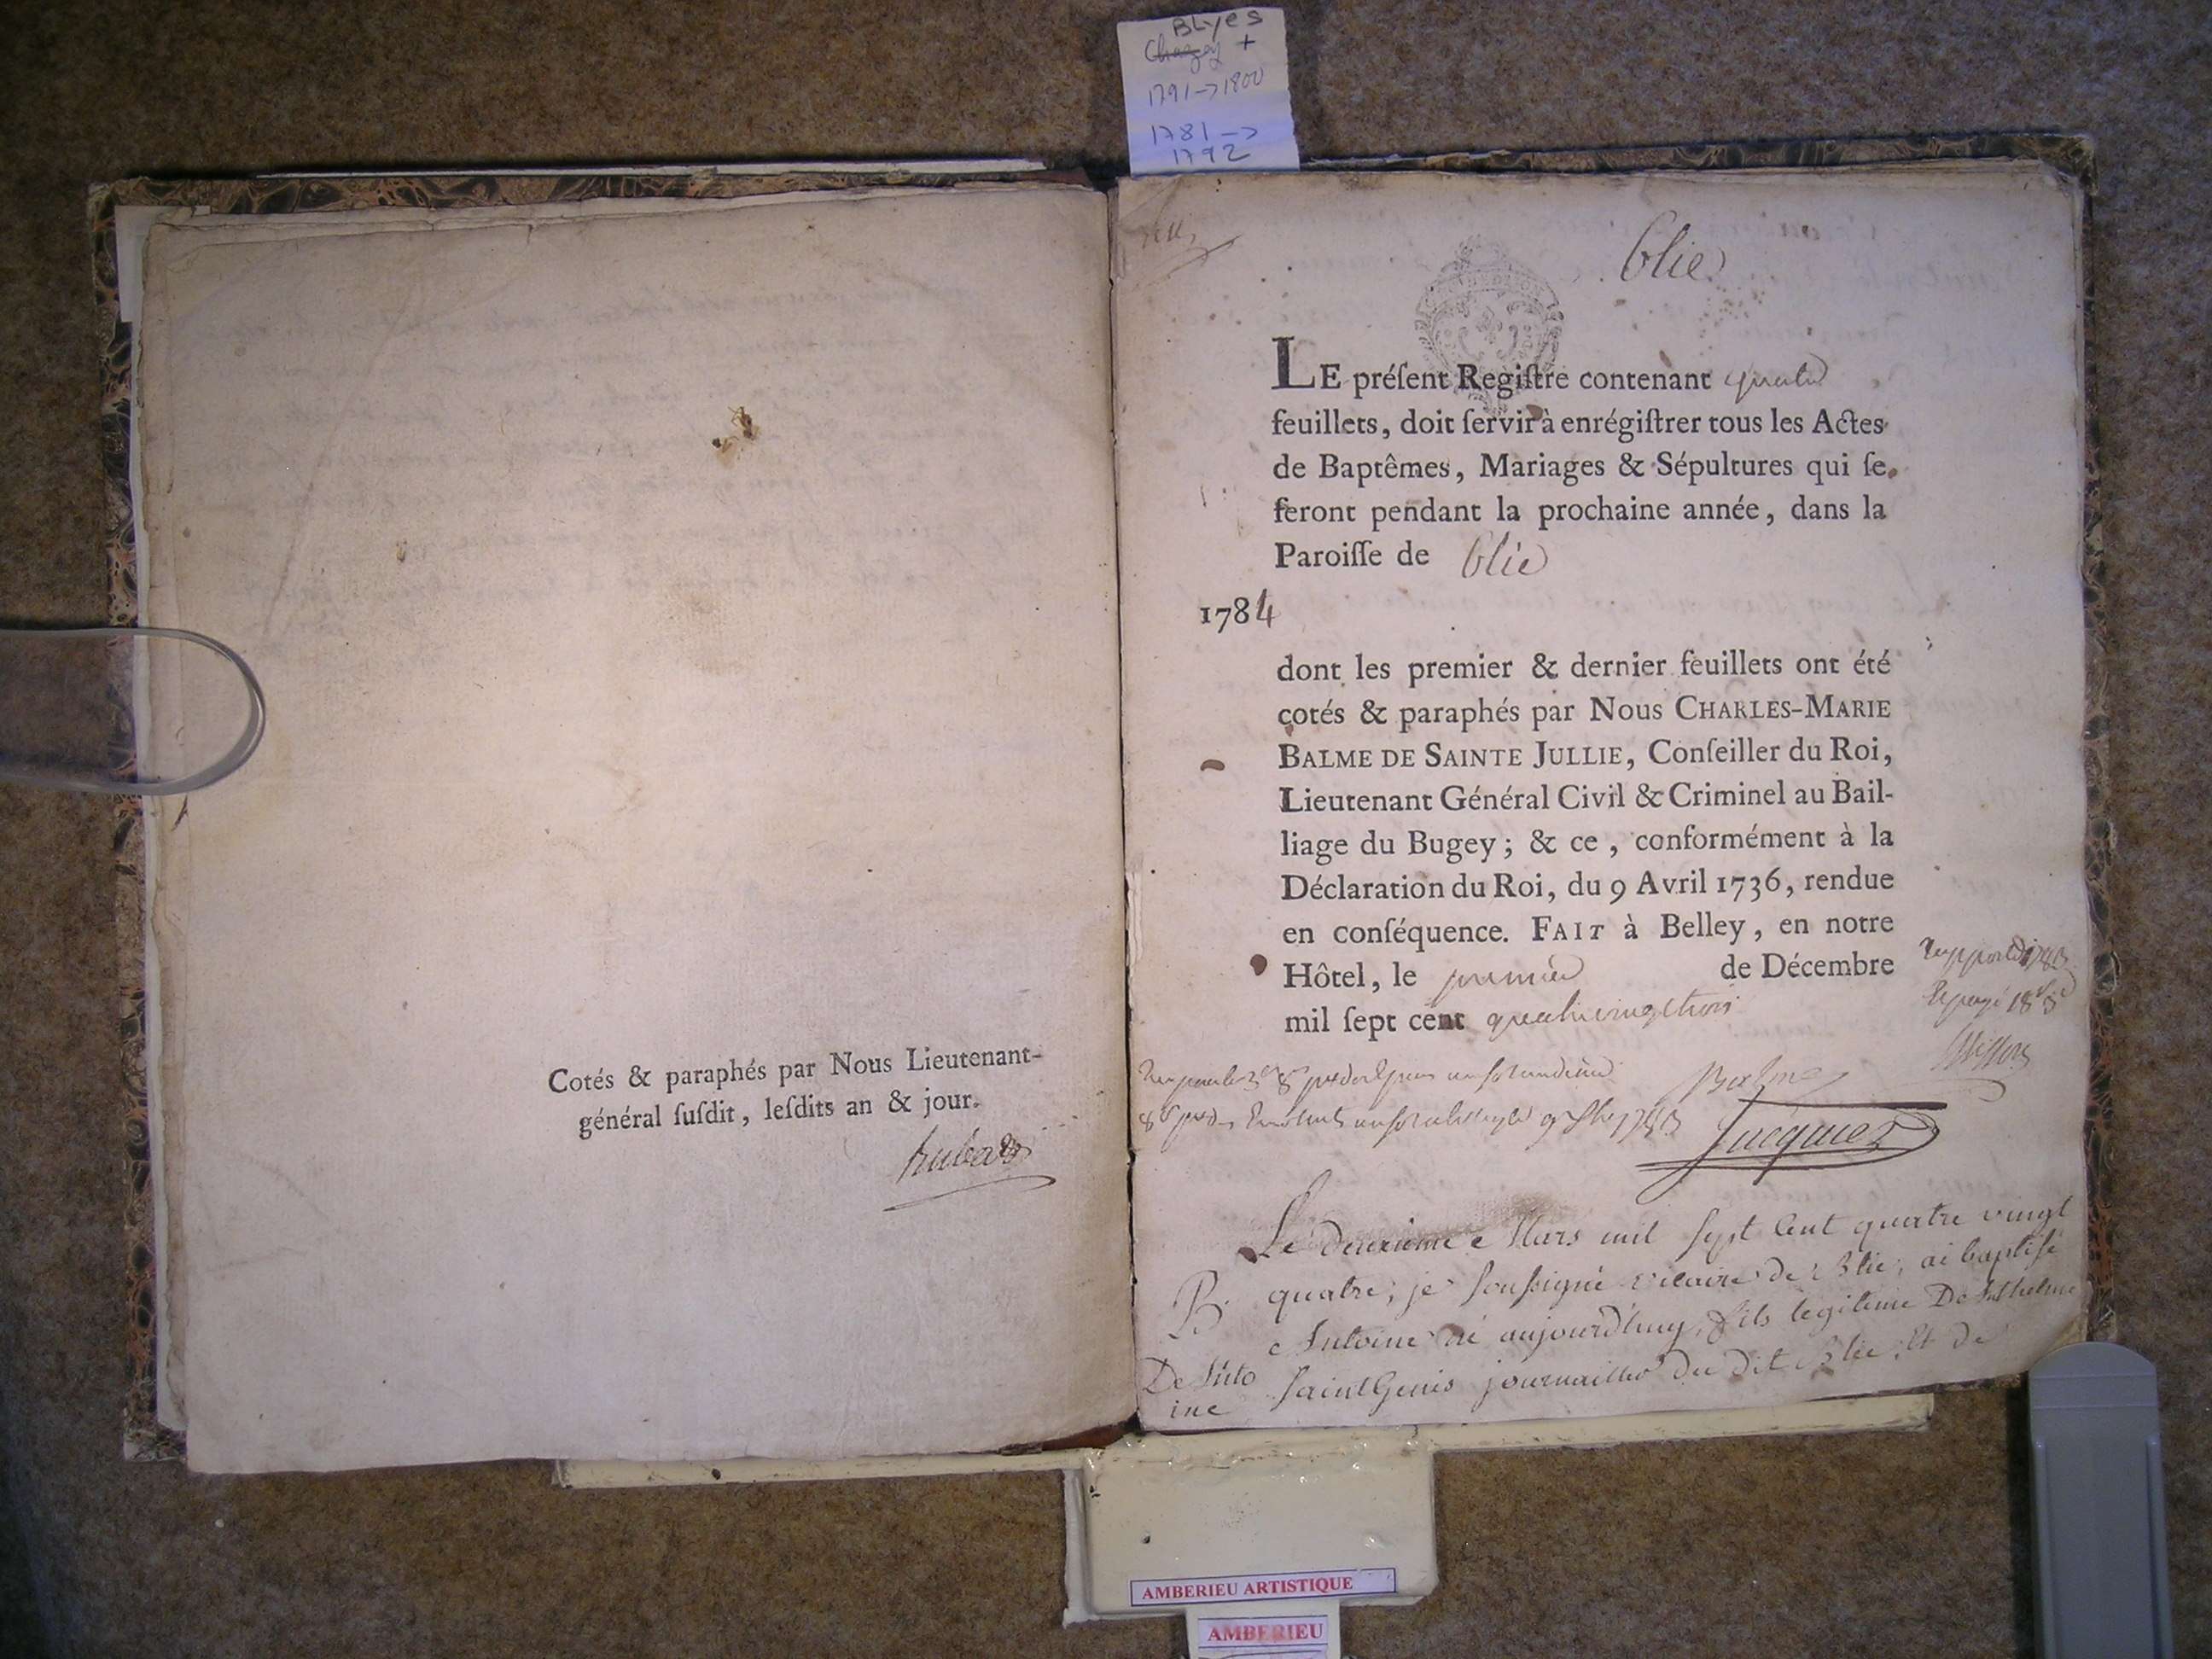 BLyes
Chazey +
1791->1800
1781->
1792
Cotés & paraphés par Nous Lieutenant-
général ſuſdit, leſdits an & jour.
blie
LE préſent Regiſtre contenant quatre
feuillets, doit ſervir à enrégiſtrer tous les Actes
de Baptêmes, Mariages & Sépultures qui ſe
feront pendant la prochaine année, dans la
Paroiſſe de blie
1784
dont les premier & dernier feuillets ont été
cotés & paraphés par Nous CHARLES-MARIE
BALME DE SAINTE JULLIE, Conſeiller du Roi,
Lieutenant Général Civil & Criminel au Bail-
liage du Bugey; & ce, conformément à la
Déclaration du Roi, du 9 Avril 1736, rendue
en conſéquence. FAIT à Belley, en notre
Hôtel, le premier de Décembre
mil ſept cent quatrevingt trois
Balme
Jacquier
Le deuxieme Mars mil sept Cent quatre vingt
quatre, je soussigné vicaire de Blie, ai baptisé
B. Antoine né aujourd'huy, fils legitime De Anthelme
De Anto SaintGenis journallier du dit Blie, et de
ine
AMBERIEU ARTISTIQUE
AMBERIEU